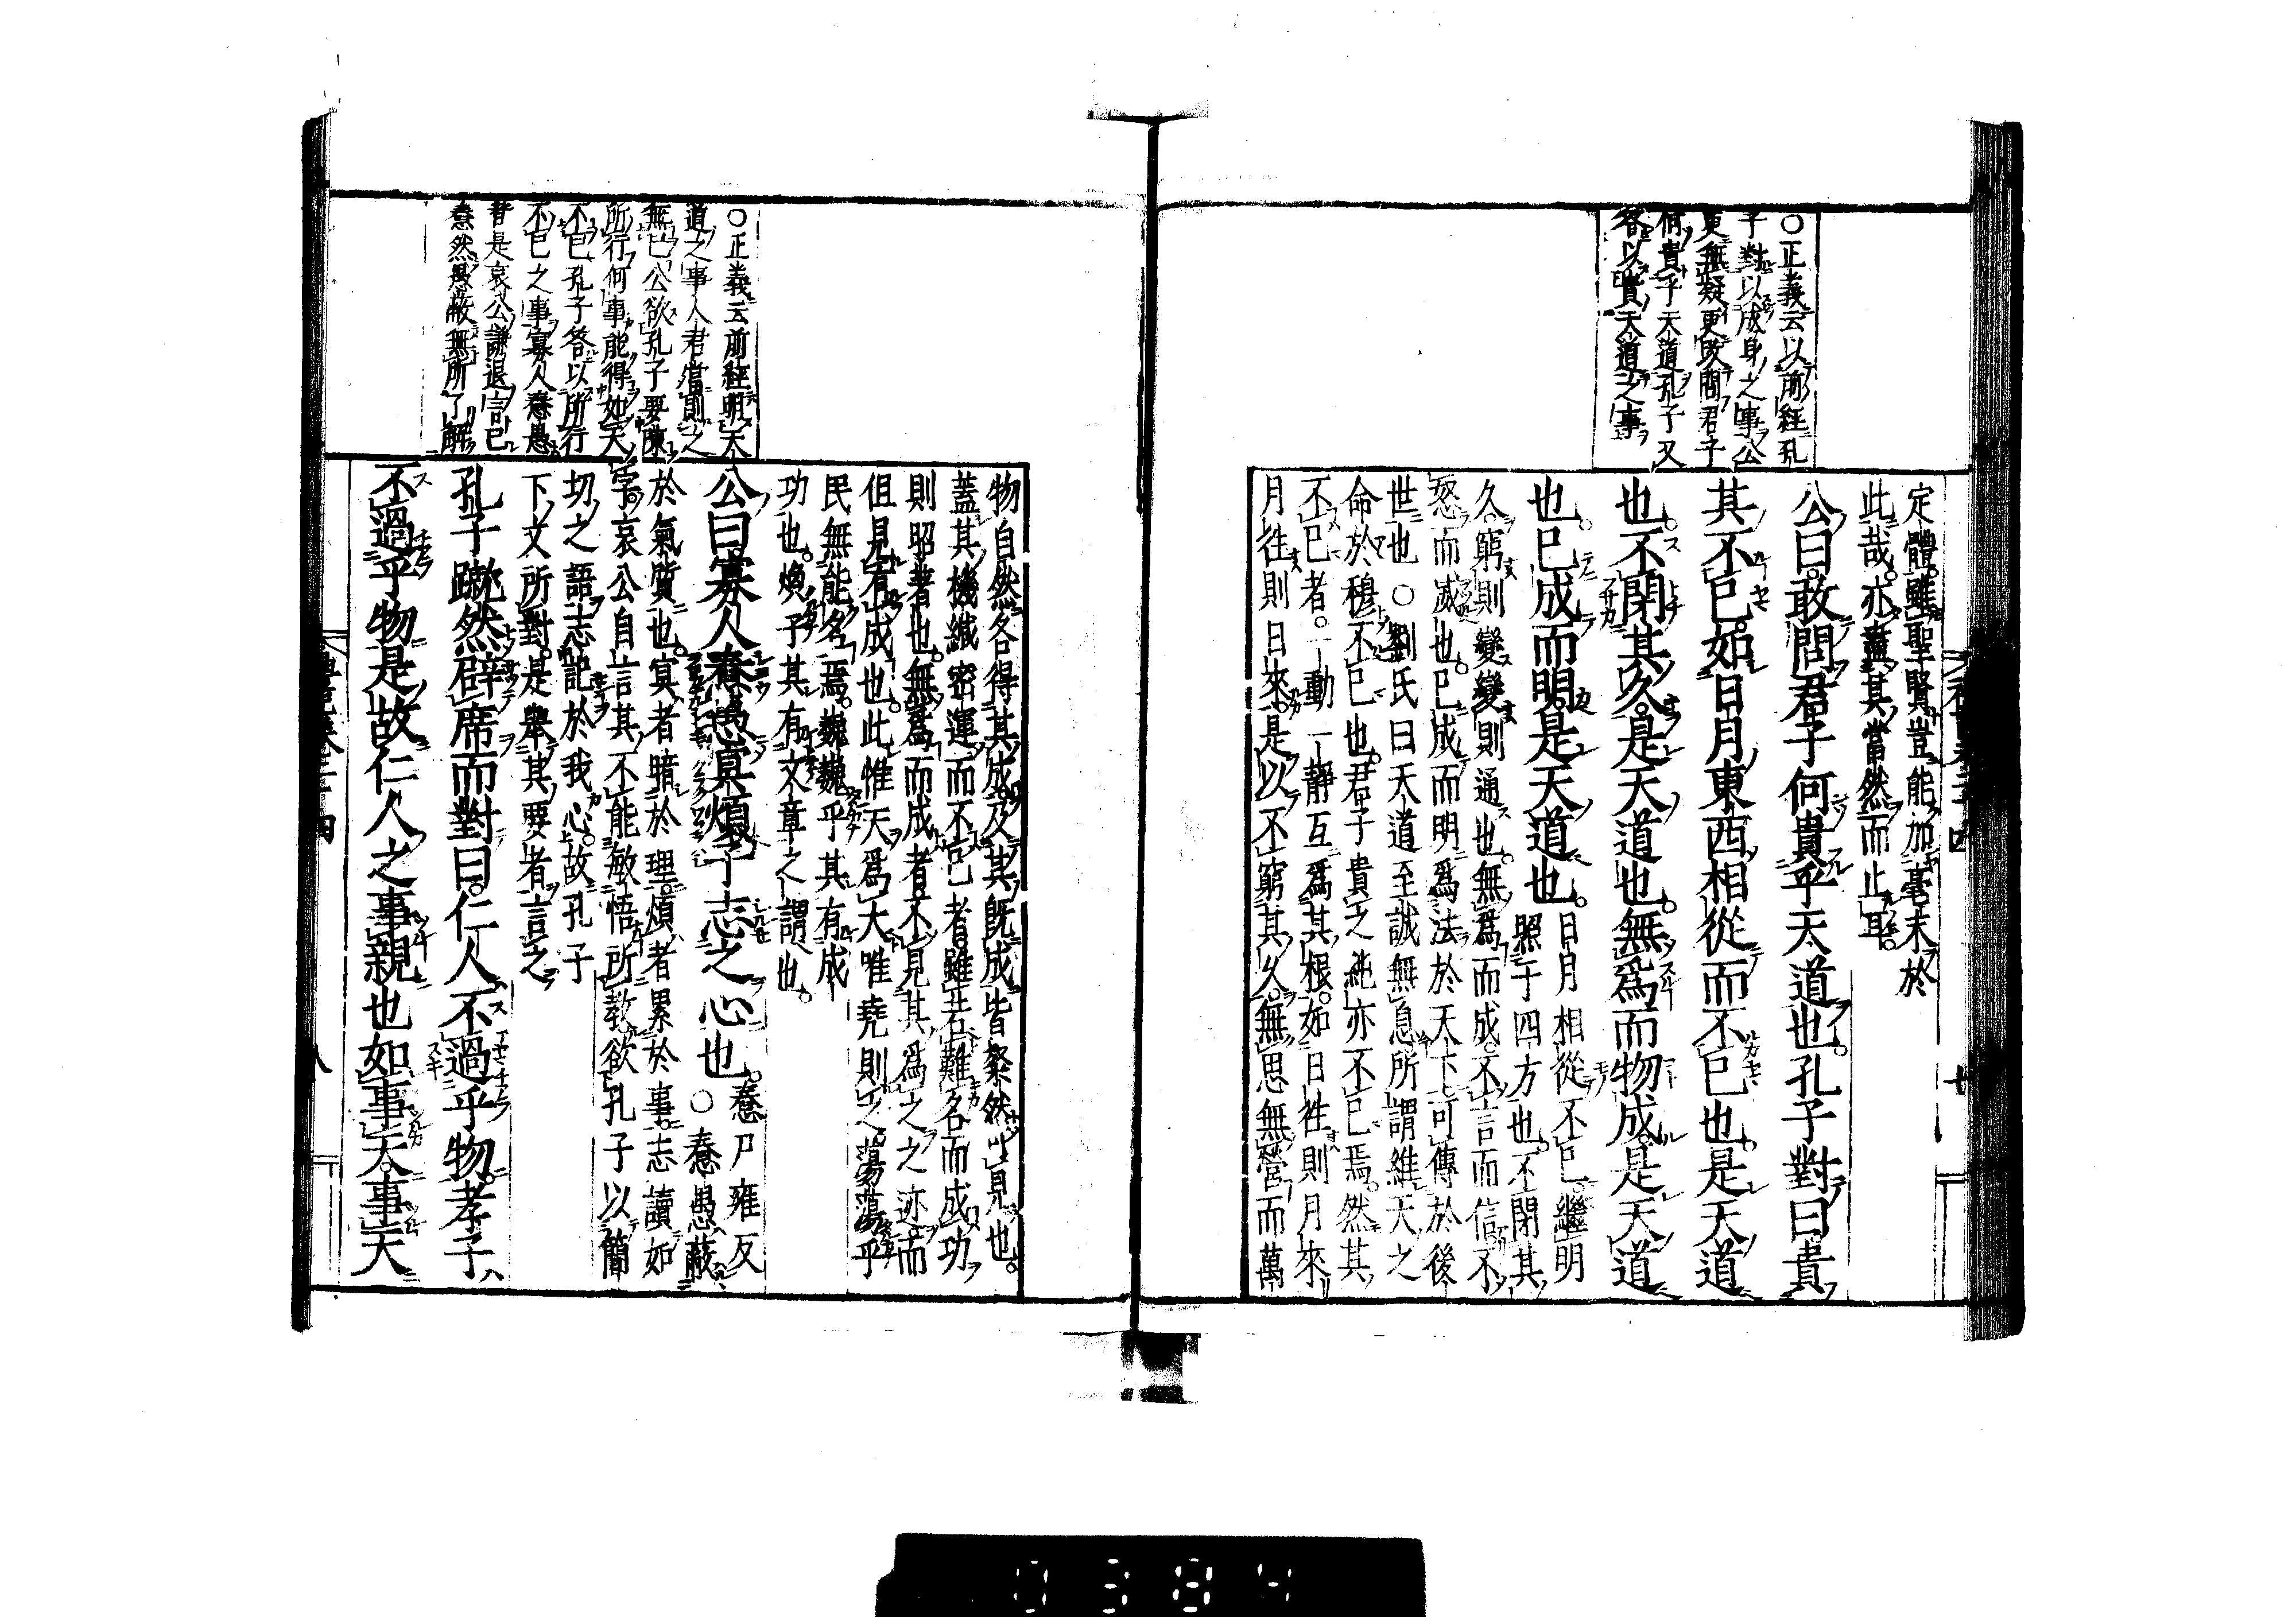 ○正義云以前經孔
子對以成身之事公
更無疑更改問君子
何貴乎天道孔子又
答以貴天道之事
定體雖聖賢豈能加毫末於
此哉亦盡其當然而止耳
公曰敢問君子何貴乎天道也孔子對曰貴
其不已如日月東西相從而不已也是天道
也不閉其久是天道也無爲而物成是天道
也已成而明是天道也
日月相從不已繼明
照于四方也不閉其
久窮則變變則通也無爲而成不言而信不
怒而威也已成而明爲法於天下可傳於後
世也○劉氏曰天道至誠無息所謂維天之
命於穆不已也君子貴之純亦不已焉然其
不已者一動一靜互爲其根如日往則月來
月往則日來是以不窮其久無思無營而萬
○正義云前經明天
道之事人君當則之
無已公欲孔子要陳
所行何事能得如天
不已孔子答以所行
不已之事寡人惷愚
者是哀公謙退言已
惷然愚蔽無所了解
物自然各得其成及其既成皆粲然可見也
蓋其機緘密運而不已者雖若難名而成功
則昭著也無爲而成者不見其爲之之迹而
但見有成也此惟天爲大唯堯則之蕩蕩乎
民無能名焉巍巍乎其有成
功也煥乎其有文章之謂也
公曰寡人惷愚冥煩子志之心也
惷尸雍反
○惷愚蔽
於氣質也冥者暗於理煩者累於事志讀如
字哀公自言其不能敏悟所教欲孔子以簡
切之語志記於我心故孔子
下文所對是舉其要者言之
孔子蹴然辟席而對曰仁人不過乎物孝子
不過乎物是故仁人之事親也如事天事天
八
0384